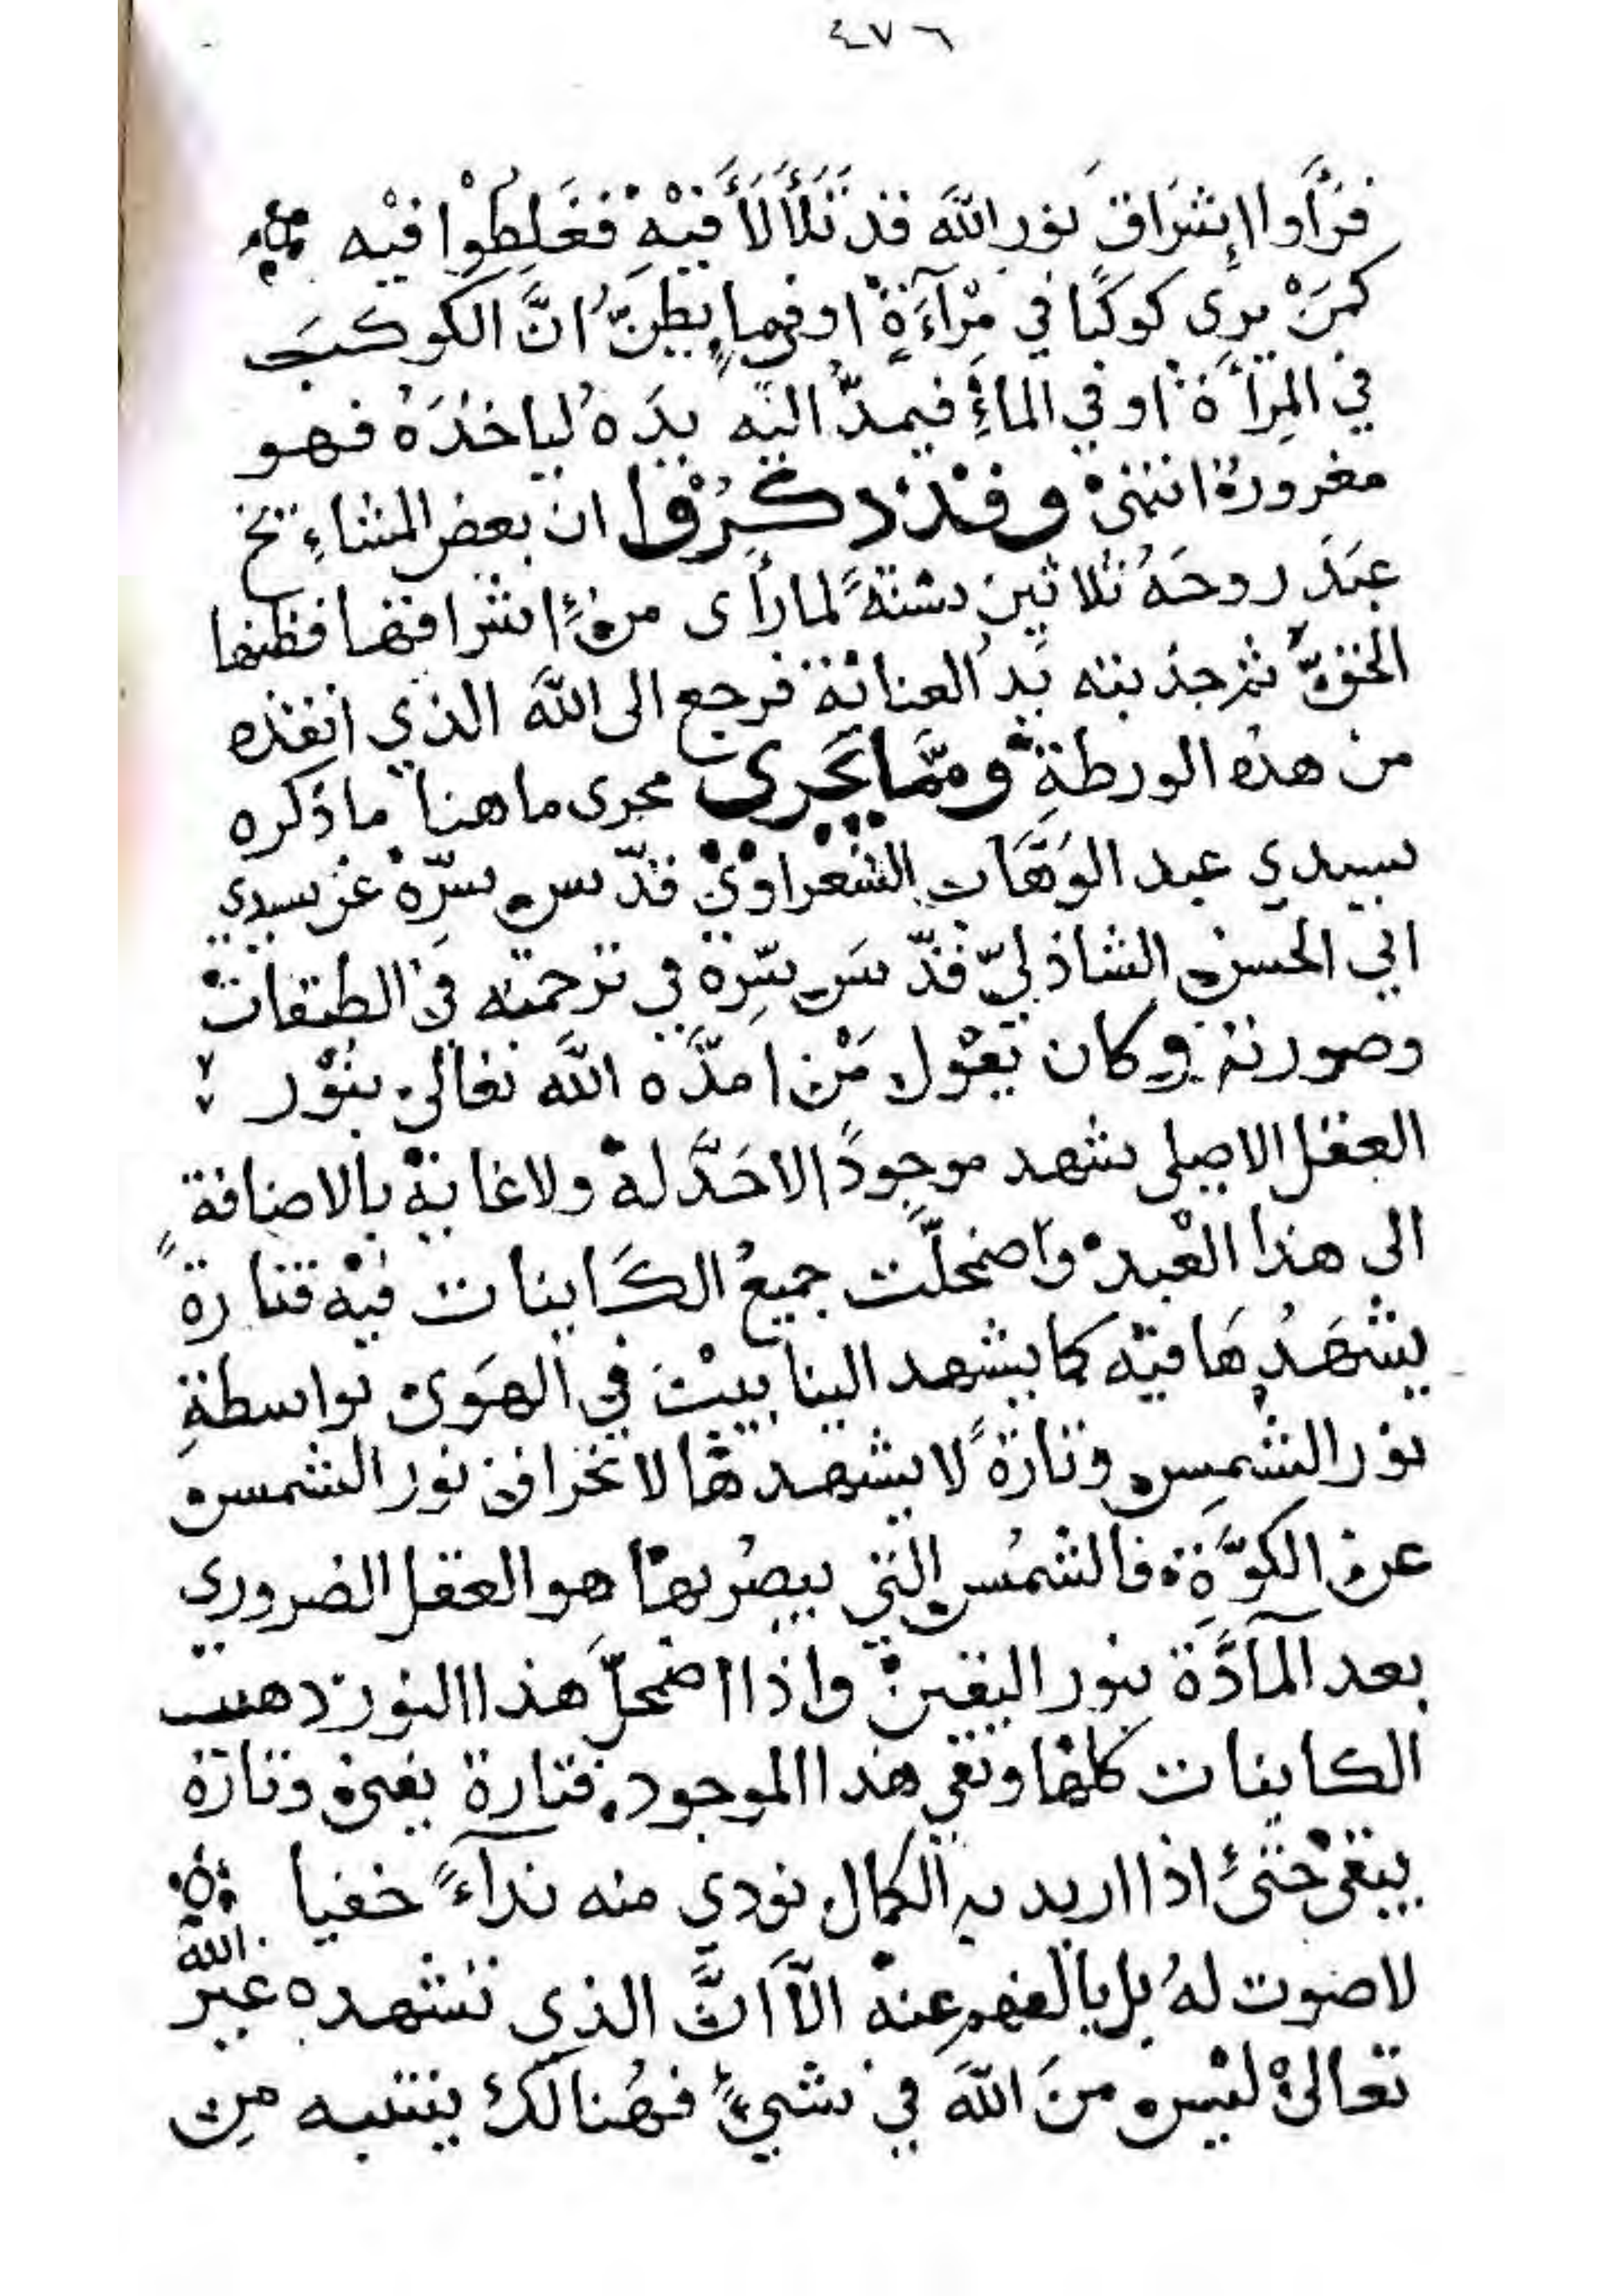 ٤٧٦
فرَأَوا إشراق نور الله قد تَلَأْلَأَ فيه فغَلِطوا فيه
كمَنْ يرى كوكبًا في مِرْآءَةٍ او في ماءٍ يظنّ انَّ الكوكبَ
في المِرأة او في الماءِ فيمدُّ اليه يدَهُ لياخذَهُ فهو
مغرور انتهى وقد ذكروا ان بعض المشايخ
عبَدَ روحَهُ ثلاثين سنةً لما رأى من اشراقها فظنها
الحقّ ثم جذبته يدُ العناية فرجع الى الله الذي انقذه
من هذه الورطةِ وممَّا يَجري مجرى ما هنا ما ذكره
سيدي عبد الوَهَّاب الشعراوي قدّس سرّه عن سيدي
ابي الحسن الشاذليّ قدّسَ سِرّه في ترجمته في الطبقات
وصورته وكان يقول مَنْ امدَّه الله تعالى بنوْر
العقل الاصلي شهد موجودًا لاحَدَّ له ولا غاية بالاضافة
الى هذا العْبد واضمحلّت جميعُ الكَاينات فيه فتارةً
يشهَدُها فيه كما يشهد الينابيت في الهَوى بواسطةِ
نور الشمسِ وتارةً لا يشهدها لانحراف نور الشمس
عن الكوَّةِ فالشمسُ التي يبصُر بها هو العقل الضروري
بعد المآدَّة بنور اليقين واذا اضمحلَّ هذا النور ذهبت
الكاينات كلها وبقي هذا الموجود فتارة يفنى وتارة
يبقى حتى اذا اريد به الكمال نودي منه ندآءً خفيا
لا صوت لهُ بل بالفهم عنه الآ انَّ الذي تشهده غير الله
تعالى ليس منَ الله في شيءٍ فهُنالك ينتبه مِن